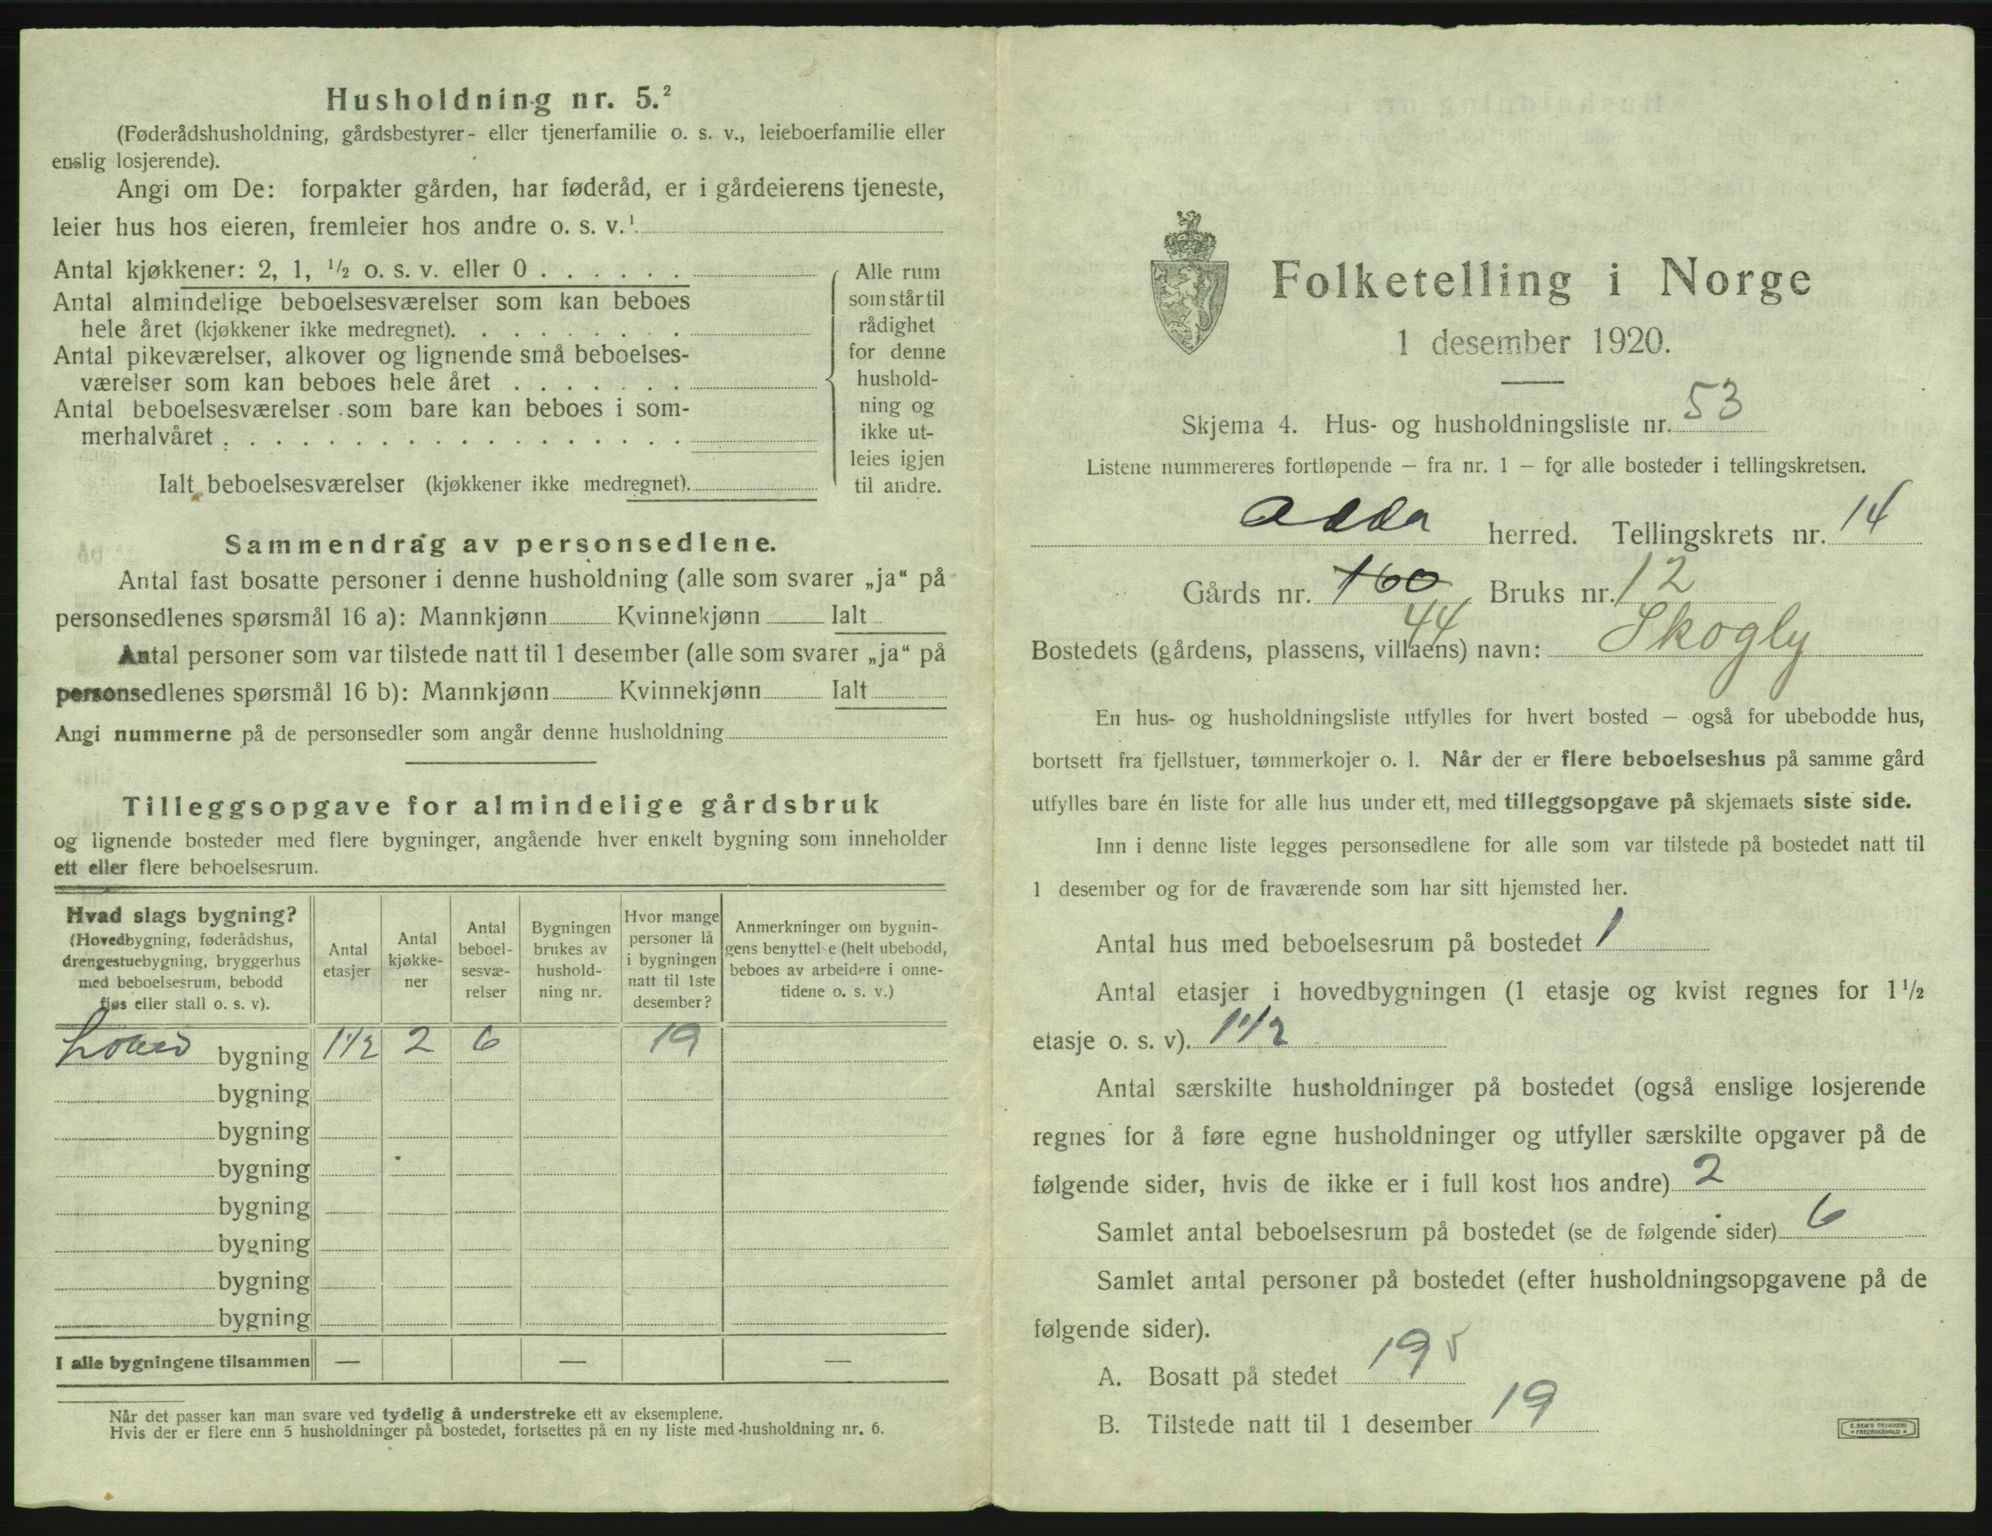 Husholdning nr. 5.²
(Føderådshusholdning, gårdsbestyrer- eller tjenerfamilie o. s. v., leieboerfamilie eller
enslig losjerende).
Angi om De: forpakter gården, har føderåd, er i gårdeierens tjeneste,
leier hus hos eieren, fremleier hos andre o. s. v.¹
Antal kjøkkener: 2, 1, ½ o. s. v. eller 0 . . . . . .
Antal almindelige beboelsesværelser som kan beboes
hele året (kjøkkener ikke medregnet). . . . . . . . .
Antal pikeværelser, alkover og lignende små beboelses-
værelser som kan beboes hele året . . . . . . .
Antal beboelsesværelser som bare kan beboes i som-
merhalvåret . . . . . . . . . . . . . . . . . .
Ialt beboelsesværelser (kjøkkener ikke medregnet).
Alle rum
som står til
rådighet
for denne
hushold-
ning og
ikke ut-
leies igjen
til andre.
Sammendrag av personsedlene.
Antal fast bosatte personer i denne husholdning (alle som svarer „ja“ på
personsedlenes spørsmål 16 a): Mannkjønn Kvinnekjønn Ialt
Antal personer som var tilstede natt til 1 desember (alle som svarer „ja“ på
personsedlenes spørsmål 16 b): Mannkjønn Kvinnekjønn Ialt
Angi nummerne på de personsedler som angår denne husholdning
Tilleggsopgave for almindelige gårdsbruk
og lignende bosteder med flere bygninger, angående hver enkelt bygning som inneholder
ett eller flere beboelsesrum.
Hvad slags bygning?
(Hovedbygning, føderådshus,
drengestuebygning, bryggerhus
med beboelsesrum, bebodd
fjøs eller stall o. s. v).
Antal
etasjer
Antal
kjøkke-
ner
Antal
beboel-
sesvæ-
relser
Bygningen
brukes av
hushold-
ning nr.
Hvor mange
personer lå
i bygningen
natt til 1ste
desember?
Anmerkninger om bygnin-
gens benyttelse (helt ubebodd,
beboes av arbeidere i onne-
tidene o. s. v.)
hoved bygning 1½ 2 6 19
bygning
bygning
bygning
bygning
bygning
bygning
bygning
I alle bygningene tilsammen — — —
Når det passer kan man svare ved tydelig å understreke ett av eksemplene.
Hvis der er flere enn 5 husholdninger på bostedet, fortsettes på en ny liste med husholdning nr. 6.
Folketelling i Norge
1 desember 1920.
Skjema 4. Hus- og husholdningsliste nr. 53
Listene nummereres fortløpende — fra nr. 1 — for alle bosteder i tellingskretsen.
Odda herred. Tellingskrets nr. 14
Gårds nr. 160 Bruks nr. 12
44
Bostedets (gårdens, plassens, villaens) navn: Skogly
En hus- og husholdningsliste utfylles for hvert bosted — også for ubebodde hus,
bortsett fra fjellstuer, tømmerkojer o. l. Når der er flere beboelseshus på samme gård
utfylles bare én liste for alle hus under ett, med tilleggsopgave på skjemaets siste side.
Inn i denne liste legges personsedlene for alle som var tilstede på bostedet natt til
1 desember og for de fraværende som har sitt hjemsted her.
Antal hus med beboelsesrum på bostedet 1
Antal etasjer i hovedbygningen (1 etasje og kvist regnes for 1½
etasje o. s. v). 1½
Antal særskilte husholdninger på bostedet (også enslige losjerende
regnes for å føre egne husholdninger og utfyller særskilte opgaver på de
følgende sider, hvis de ikke er i full kost hos andre) 2
Samlet antal beboelsesrum på bostedet (se de følgende sider) 6
Samlet antal personer på bostedet (efter husholdningsopgavene på de
følgende sider).
A. Bosatt på stedet 19
B. Tilstede natt til 1 desember 19
E. SEM'S TRYKKERI
FREDRIKSHALD